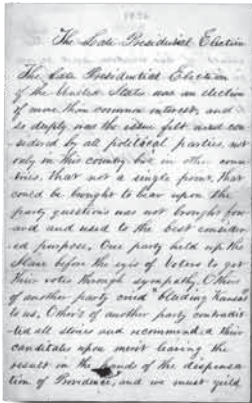 The Late Presidential Election
The Late Presidential Election
of the United States was an election
of more than common interest, and
so deeply was the issue felt and con
sidered by all political parties, not
only in this country but in other coun
tries. that not a single point, that
could be brought to bear upon the
party questions was not brought for
ward and used to the best consider
ed purpose, One party held up the
Slave before the eyes of Voters to get
their votes through sympathy. Others
of another party cried bleeding Kansas
to us, Others of another party contradic
ted all stories and recommended their
candidates upon merit leaving the
result in the hands of the dispensa
tion of Providence, and we must yield